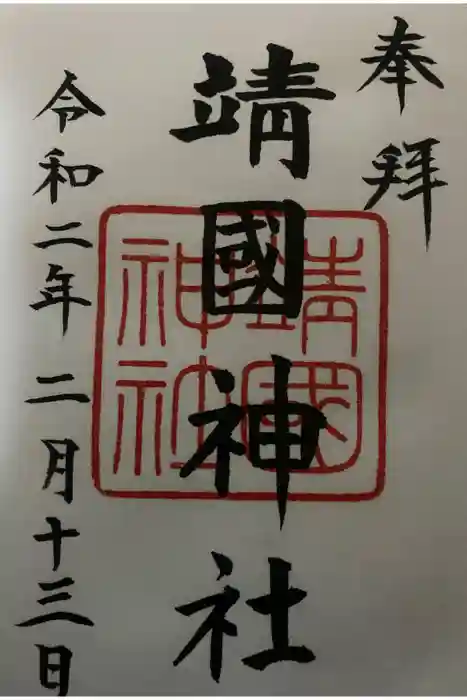 奉拜
靖國神社
靖國
神社
令和二年二月十三日